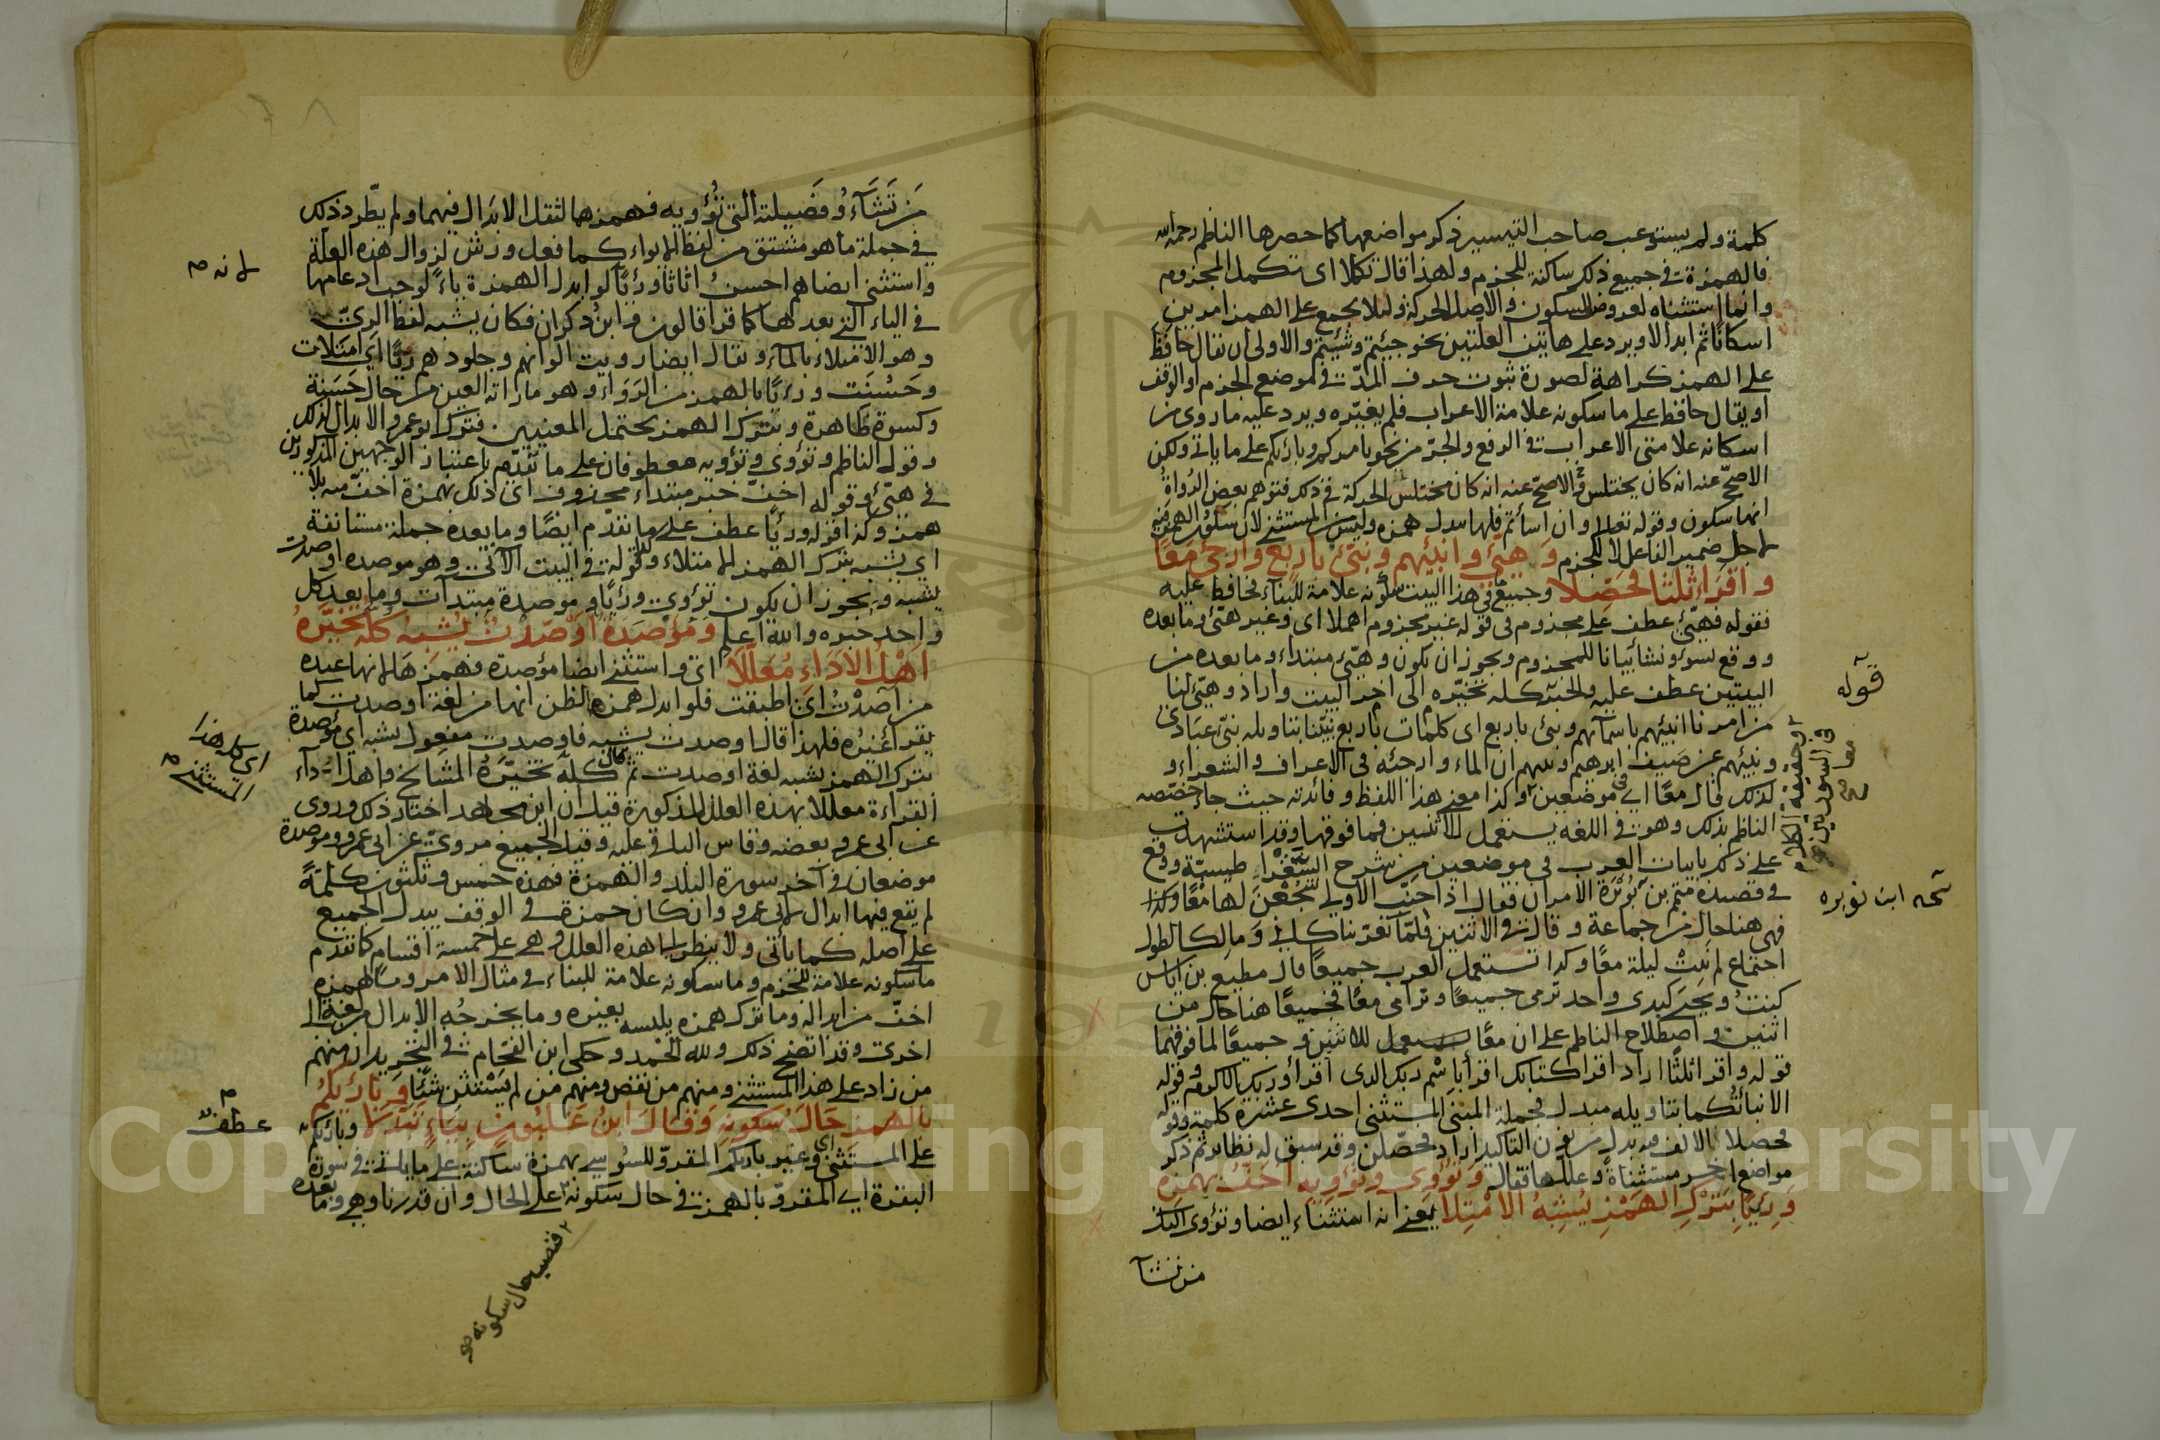 كلمة ولم يستوعب صاحب التيسير ذكر مواضعها كما حصرها الناظم رحمه الله
فالهمزة في جميع ذلك ساكنة للجزم ولهذا قال تكملا اى تكمل المجزوم
وانما استثناه لعروض السكون والاصل الحركة ولئلا يجمع على الهمز امرين
اسكانا ثم ابدالا ويرد على هاتين العلتين نحو جئتم وشئتم والاولى ان يقال حافظ
على الهمز كراهة لصورة ثبوت حرف المدّ في موضع الجزم او الوقف
او يقال حافظ على ما سكونه علامة الاعراب فلم يغيّره ويرد عليه ما روى من
اسكانه علامتى الاعراب في الرفع والجرّ من نحو يامركم وبارئكم على ما ياتى ولكن
الاصحّ عنه انه كان يختلس الحركة في ذلك فتوهم بعض الرواة
انها سكون وقوله تعالى وان اسأتم فلها يبدل همزه وليس من المستثنى لان سكون الهمز فيه
لاجل ضمير الفاعل لا للجزم وَهَيِّئْ وانبئهم ونبّئ باربع وارجئ مَعًا
واقرأ ثلثا فحصّلا وجميع ما في هذا البيت سكونه علامة للبناء فحافظ عليه
فقوله وهيّئ عطف على مجزوم في قوله غير مجزوم اهملا اى وغير هيّئ وما بعده
ووقع يسؤ ونشأ بيانا للمجزوم ويجوز ان يكون وهيّئ مبتداء وما بعده من
البيتين عطف عليه والخبر كله تخيّره الى اخر البيت واراد وهيّئ لنا
من امرنا انبئهم باسمآئهم ونبئ باربع اى كلمات باربع نبّئنا بتاويله نبّئ عبادى
ونبّئهم عن ضيف ابرهيم ونبئهم ان الماء وارجئه في الاعراف والشعراء و
لذلك قال معًا اى في موضعين وكذا معنى هذا اللفظ وفائدته حيث جاء خصّصه
الناظم بذلك وهو في اللغة يستعمل للاثنين فما فوقها وقد استشهدت
على ذلك بابيات العرب في موضعين من شرح الشقراطيسيّة ووقع
في قصيدة متمم بن نُوَيْرَة الامران فقال اذا حنّت الاولى سجعن لها معًا وكذا
فهى هنا حال من جماعة وقال في الاثنين فلمّا تفرّقنا كانى ومالكا لطول
اجتماع لم نبت ليلة معًا وكذا تستعمل العرب جميعًا قال مطيع بن اياس
كنت ويحيى كيدى واحد نرمى جميعًا ونرامى معًا فجميعًا هنا حال من
اثنين واصطلاح الناظم على ان معًا يستعمل للاثنين وجميعًا لما فوقهما
قوله واقرأ ثلثًا اراد اقرا كتابك اقرأ باسم ربك الذى اقرأ وربك الاكرم وقوله
الا نبأتكما بتاويله مبدل فجملة المبنى المستثنى احدى عشرة كلمة وقوله
فحصلا الالف فيه بدل من نون التاكيد اراد فحصّلن وقد سبق له نظائر ثم ذكر
مواضع اخر مستثناة وعللها فقال وتؤوى وتؤويه اخفّ بهمزه
ورئيا بترك الهمز يشبه الامتلا يعنى انه استثناء ايضا وتؤوى اليك
من تشآ
قوله
في السورتين
معا صح
نسخه ابن نويره
من تَشَآءُ وفَصيلته التى تُؤْويه فهمزهما لثقل الابدال فيهما ولم يطّرد ذلك
في جملة ما هو مشتق من لفظ الايواء كما فعل ورش لزوال هذه العلة
واستثنى ايضا هم احسنُ اثاثًا ورئيًا لو ابدل الهمزة ياءً لوجب ادغامها
في الياء التى بعدها كما قرا قالون وابن ذكوان فكان يشبه لفظ الرىّ
وهو الامتلاء بالمآء ويقال ايضا رويت الوانهم وجلودهم ريًّا اى امتلات
وحسُنت ورئيًا بالهمز من الرواء وهو ما راته العين من حال حسنة
وكسوة ظاهرة وبترك الهمز يحتمل المعنيين فترك ابو عمرو الابدال لذلك
وقول الناظم وتؤوى وتؤويه معطوفان على ما تقدّم باعتبار الوجهين المذكورين
في هيّئ وقوله اخفّ خبر مبتداء محذوف اى ذلك بهمزة اخفّ منه بلا
همز وكذا قوله ورئيًا عطف على ما تقدّم ايضًا وما بعده جملة مستانفة
اى يشبه بترك الهمز الامتلاء ولقوله في البيت الآتى وهو موصدة اوصدت
يشبه ويجوز ان يكون تؤوى ورئيًا وموصدة مبتدآت وما بعد كل
واحد خبره والله اعلم وَمُؤْصَدَةٌ اَوْصَدْتُ يُشْبِهُ كُلُّهُ تَخَيَّرَهُ
اَهْلُ الاَدَاءِ مُعَلَّلَا اى واستثنى ايضا مؤصدة وهمزها لانها عنده
من آصدتُ اى اطبقت فلو ابدل همزها لظن انها من لغة اوصدت كما
يقرأ غيره فلهذا قال اوصدت يشبه فاوصدت مفعول يشبه اى مؤصدة
بترك الهمز يشبه لغة اوصدت ثم قال كله تخيّرهُ المشايخ واهل اداء
القراءة معللا بهذه العلل المذكورة قيل ان ابن مجاهد اختار ذلك وروى
عن ابى عمرو بعضه وقاس الباقى عليه وقيل الجميع مروىّ عن ابى عمرو وموصدة
موضعان في آخر سورة البلد والهمزة فهذه خمس وثلثون كلمةً
لم يقع فيها ابدال لابى عمرو وان كان حمزة في الوقف يبدل الجميع
على اصله كما يأتى ولا ينظر الى هذه العلل وهى على خمسة اقسام كما تقدم
ما سكونه علامة للجزم وما سكونه علامة للبناء في مثال الامر وما همزه
اخفّ من ابداله وما ترك همزه يلبسه بغيره وما يخرجه الابدال من لغة الى
اخرى وقد اتضح ذلك ولله الحمد وحكى ابن الفحّام في التجريد ان منهم
من زاد على هذا المستثنى ومنهم من نقص ومنهم من لم يستثن شيئًا وَبَارِئِكُمُ
بالهمز حالَ سكونِهِ وَقَالَ ابنُ غَلبُونٍ بِيَاءٍ تَبَدَّلا وبارئكم
على المستثنى اى وغير بارئكم المقروّ للسوسى بهمزة ساكنة على ما ياتى في سورة
البقرة اى المقروّ بالهمز في حال سكونه على الحال وان قدرنا وهى وما بعده
لانه
اى كل هذا
المستثنى
عطف
فنصب حال سكونه